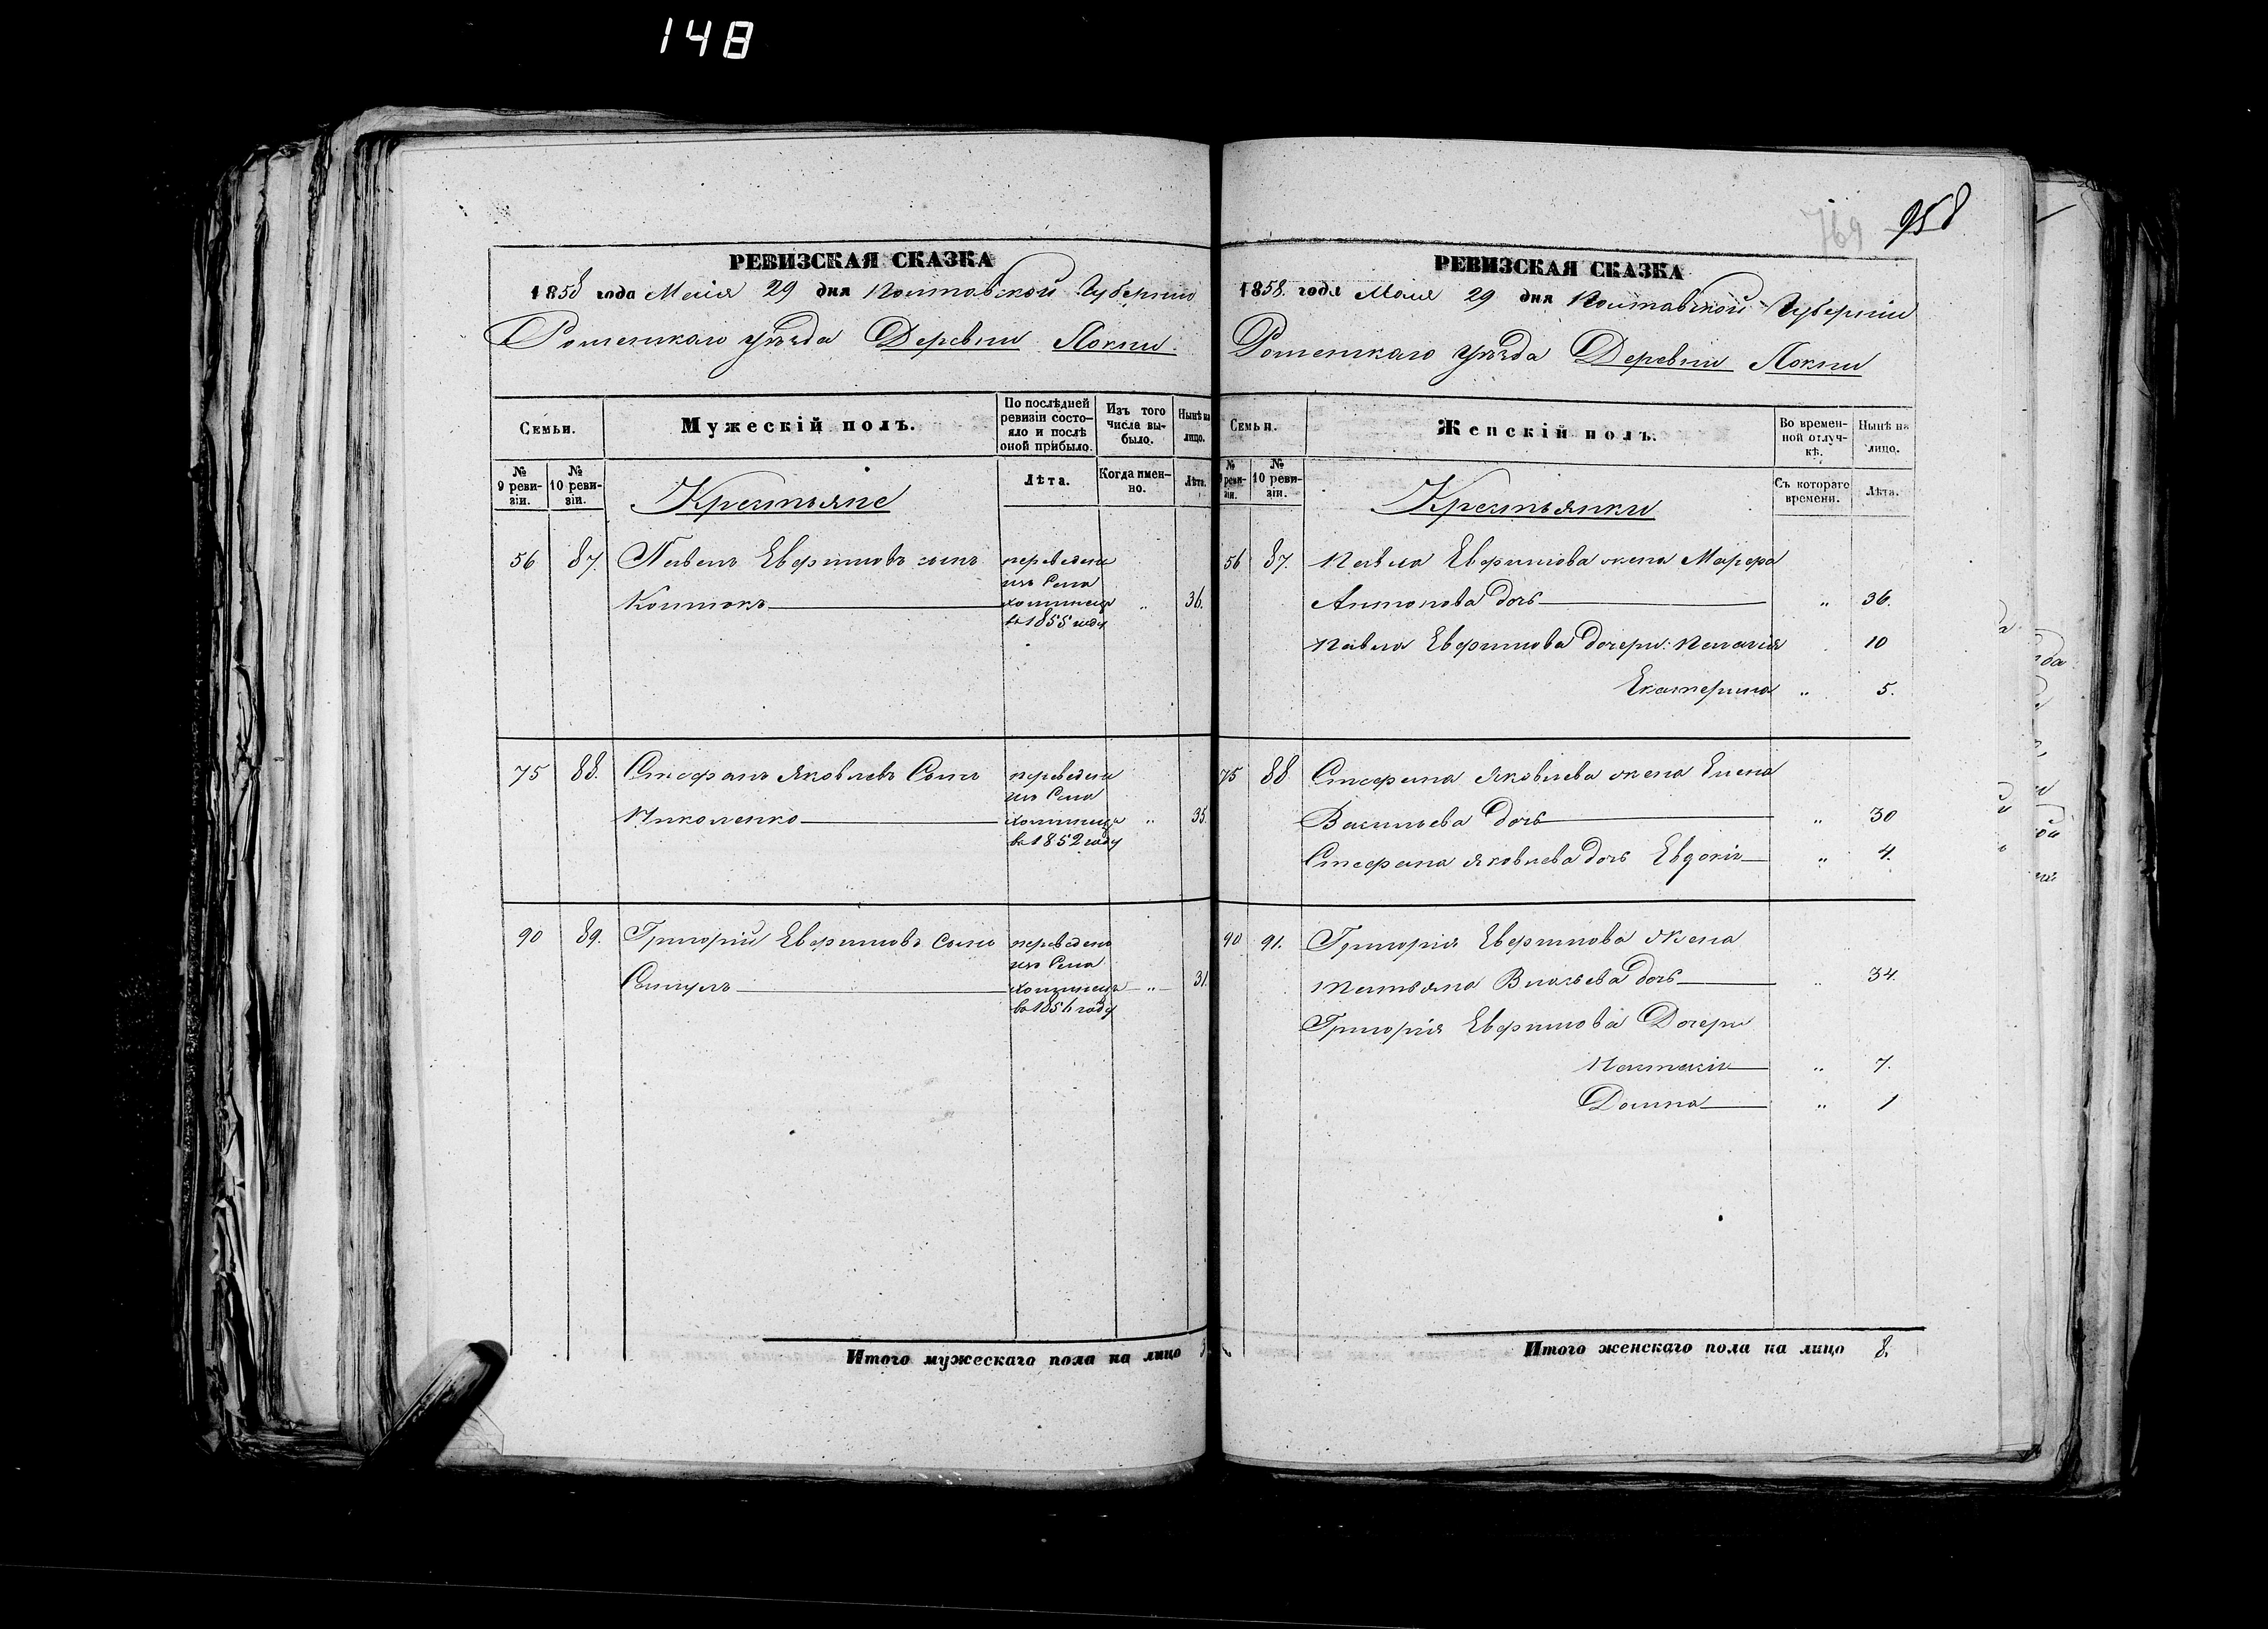 148
769 958
РЕВИЗСКАЯ СКАЗКА
1858 года Маія 29 дня Полтавской Губерніи
Роменскаго уѣзда Деревни Локни.
Семьи.
Мужескій полъ.
По послѣдней ревизіи состояло и послѣ оной прибыло.
Изъ того числа выбыло.
Нынѣ на лицо.
№ 9 ревизіи.
№ 10 ревизіи.
Крестьяне
Лѣта.
Когда именно.
Лѣта.
56 87. Павелъ Евфимовъ сынъ переведенъ
изъ Села
"
36.
въ 1855 году
75 88. Стефанъ Яковлевъ Сынъ переведенъ
изъ Села
Николенко
"
35.
въ 1852 году
90 89. Григорій Евфимовъ Сынъ переведенъ
изъ Села
"
31.
Итого мужескаго пола на лицо 3.
РЕВИЗСКАЯ СКАЗКА
1858. года Маія 29 дня Полтавской Губерніи
Роменскаго уѣзда Деревни Локни
Семьи.
Женскій полъ.
Во временной отлучкѣ.
Нынѣ на лицо.
№ 9 ревизіи.
№ 10 ревизіи.
Крестьянки
Съ котораго времени.
Лѣта.
56 87. Павла Евфимова жена Марфа
Антонова дочь " 36.
Павла Евфимова дочери: Пелагія 10
Екатерина " 5.
75 88 Стефана Яковлева жена Елена
Васильева дочь " 30
Стефана Яковлева дочь Евдокія " 4.
90 91. Григорія Евфимова жена
Татьяна Власьева дочь " 34.
Григорія Евфимова Дочери
" 7.
Домна " 1
Итого женскаго пола на лицо 8.